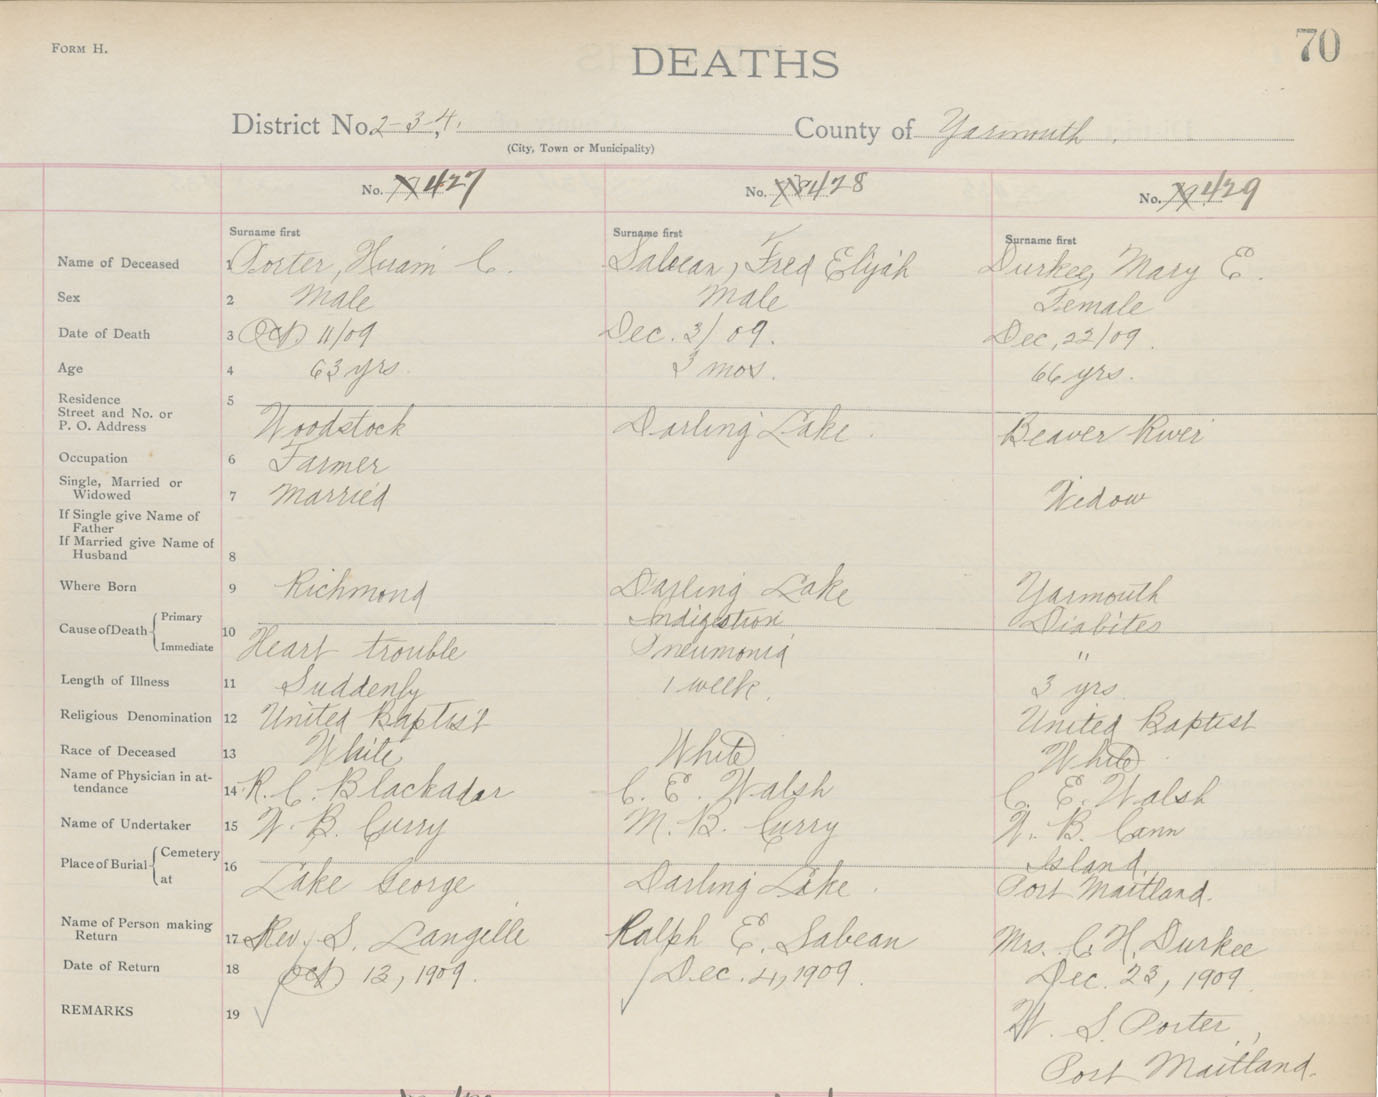 FORM H.
70
DEATHS
District No. 2-3-4. County of Yarmouth.
(City, Town or Municipality)
No. 427 No. 428 No. 429
Surname first Surname first Surname first
Name of Deceased 1 Porter, Hiram C. Sabean, Fred Elijah Durkee, Mary E.
Sex 2 Male Male Female
Date of Death 3 Oct 11/09 Dec. 3/09. Dec, 22/09.
Age 4 63 yrs. 3 mos. 66 yrs.
Residence 5
Street and No. or
P. O. Address Woodstock Darling Lake. Beaver River
Occupation 6 Farmer
Single, Married or
Widowed 7 Married Widow
If Single give Name of
Father
If Married give Name of
Husband 8
Where Born 9 Richmond Darling Lake Yarmouth
Primary Indigestion Diabites
Cause of Death 10
Immediate Heart trouble Pneumonia "
Length of Illness 11 Suddenly 1 week. 3 yrs
Religious Denomination 12 United Baptist United Baptist
Race of Deceased 13 White White White
Name of Physician in at-
tendance 14 R. C. Blackadar C. E. Walsh C. E. Walsh
Name of Undertaker 15 W. B. Curry M. B. Curry W. B. Cann
Place of Burial Cemetery 16 Island,
at Lake George Darling Lake. Port Maitland.
Name of Person making
Return 17 Rev. S. Langille Ralph E. Sabean Mrs. C. H. Durkee
Date of Return 18 Oct 13, 1909. Dec. 4, 1909. Dec. 23, 1909.
REMARKS 19 W. S. Porter,
Port Maitland.